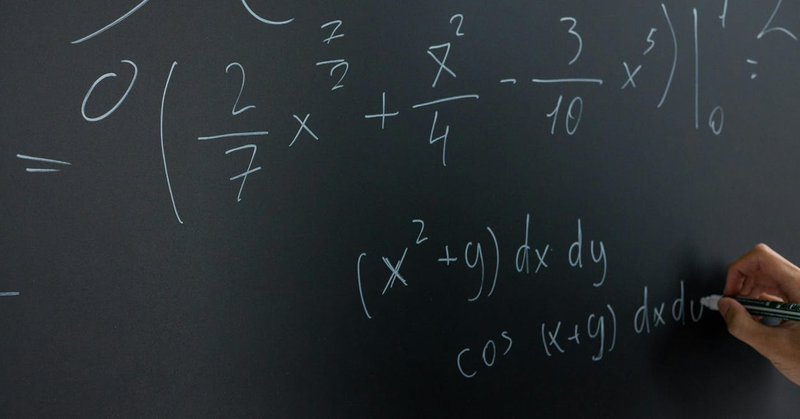 = 0 ( 2/7 x^(7/2) + x^2/4 - 3/10 x^5 ) |_0^1 =
(x^2 + y) dx dy
cos (x+y) dx dy